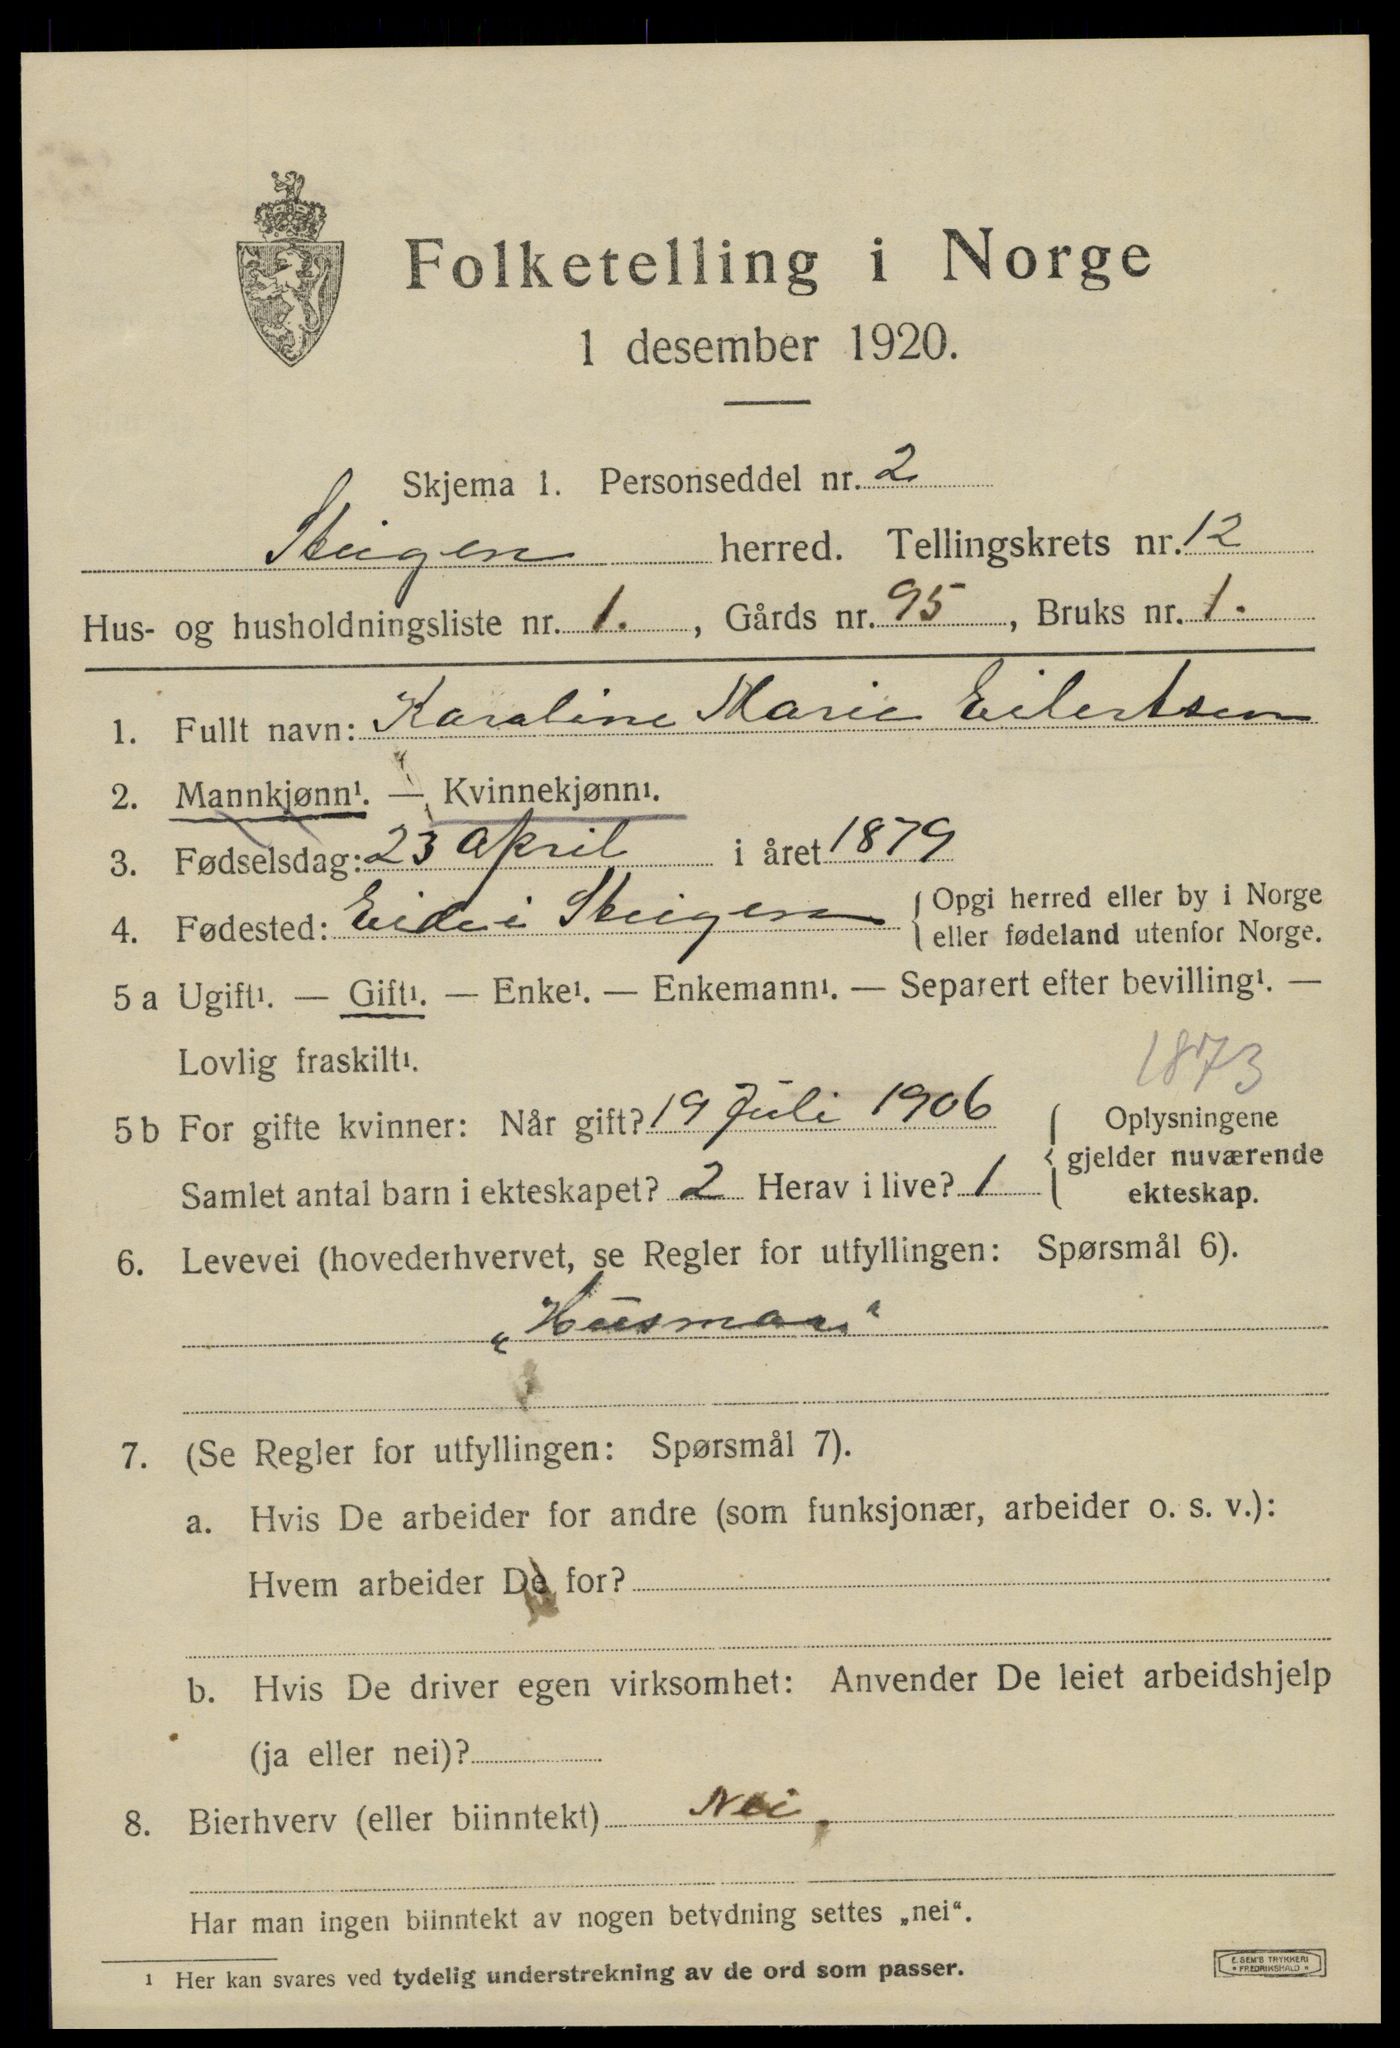 Folketelling i Norge
1 desember 1920.
Skjema 1. Personseddel nr. 2
Steigen herred. Tellingskrets nr. 12
Hus- og husholdningsliste nr. 1. , Gårds nr. 95 , Bruks nr. 1.
1. Fullt navn: Karoline Marie Eilertsen
2. Mannkjønn¹. — Kvinnekjønn¹.
3. Fødselsdag: 23 april i året 1879
4. Fødested: Eide i Steigen { Opgi herred eller by i Norge
eller fødeland utenfor Norge.
5 a Ugift¹. — Gift¹. — Enke¹. — Enkemann¹. — Separert efter bevilling¹. —
Lovlig fraskilt¹.
1873
5 b For gifte kvinner: Når gift? 19 Juli 1906 { Oplysningene
gjelder nuværende
ekteskap.
Samlet antal barn i ekteskapet? 2 Herav i live? 1
6. Levevei (hovederhvervet, se Regler for utfyllingen: Spørsmål 6).
„Husmor“
7. (Se Regler for utfyllingen: Spørsmål 7).
a. Hvis De arbeider for andre (som funksjonær, arbeider o. s. v.):
Hvem arbeider De for?
b. Hvis De driver egen virksomhet: Anvender De leiet arbeidshjelp
(ja eller nei)?
8. Bierhverv (eller biinntekt) Nei
Har man ingen biinntekt av nogen betydning settes „nei“.
¹ Her kan svares ved tydelig understrekning av de ord som passer.
E. SEM'S TRYKKERI
FREDRIKSHALD